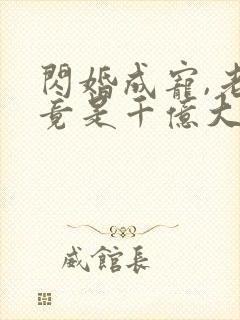 閃婚成寵,老
竟是千億大
威館長